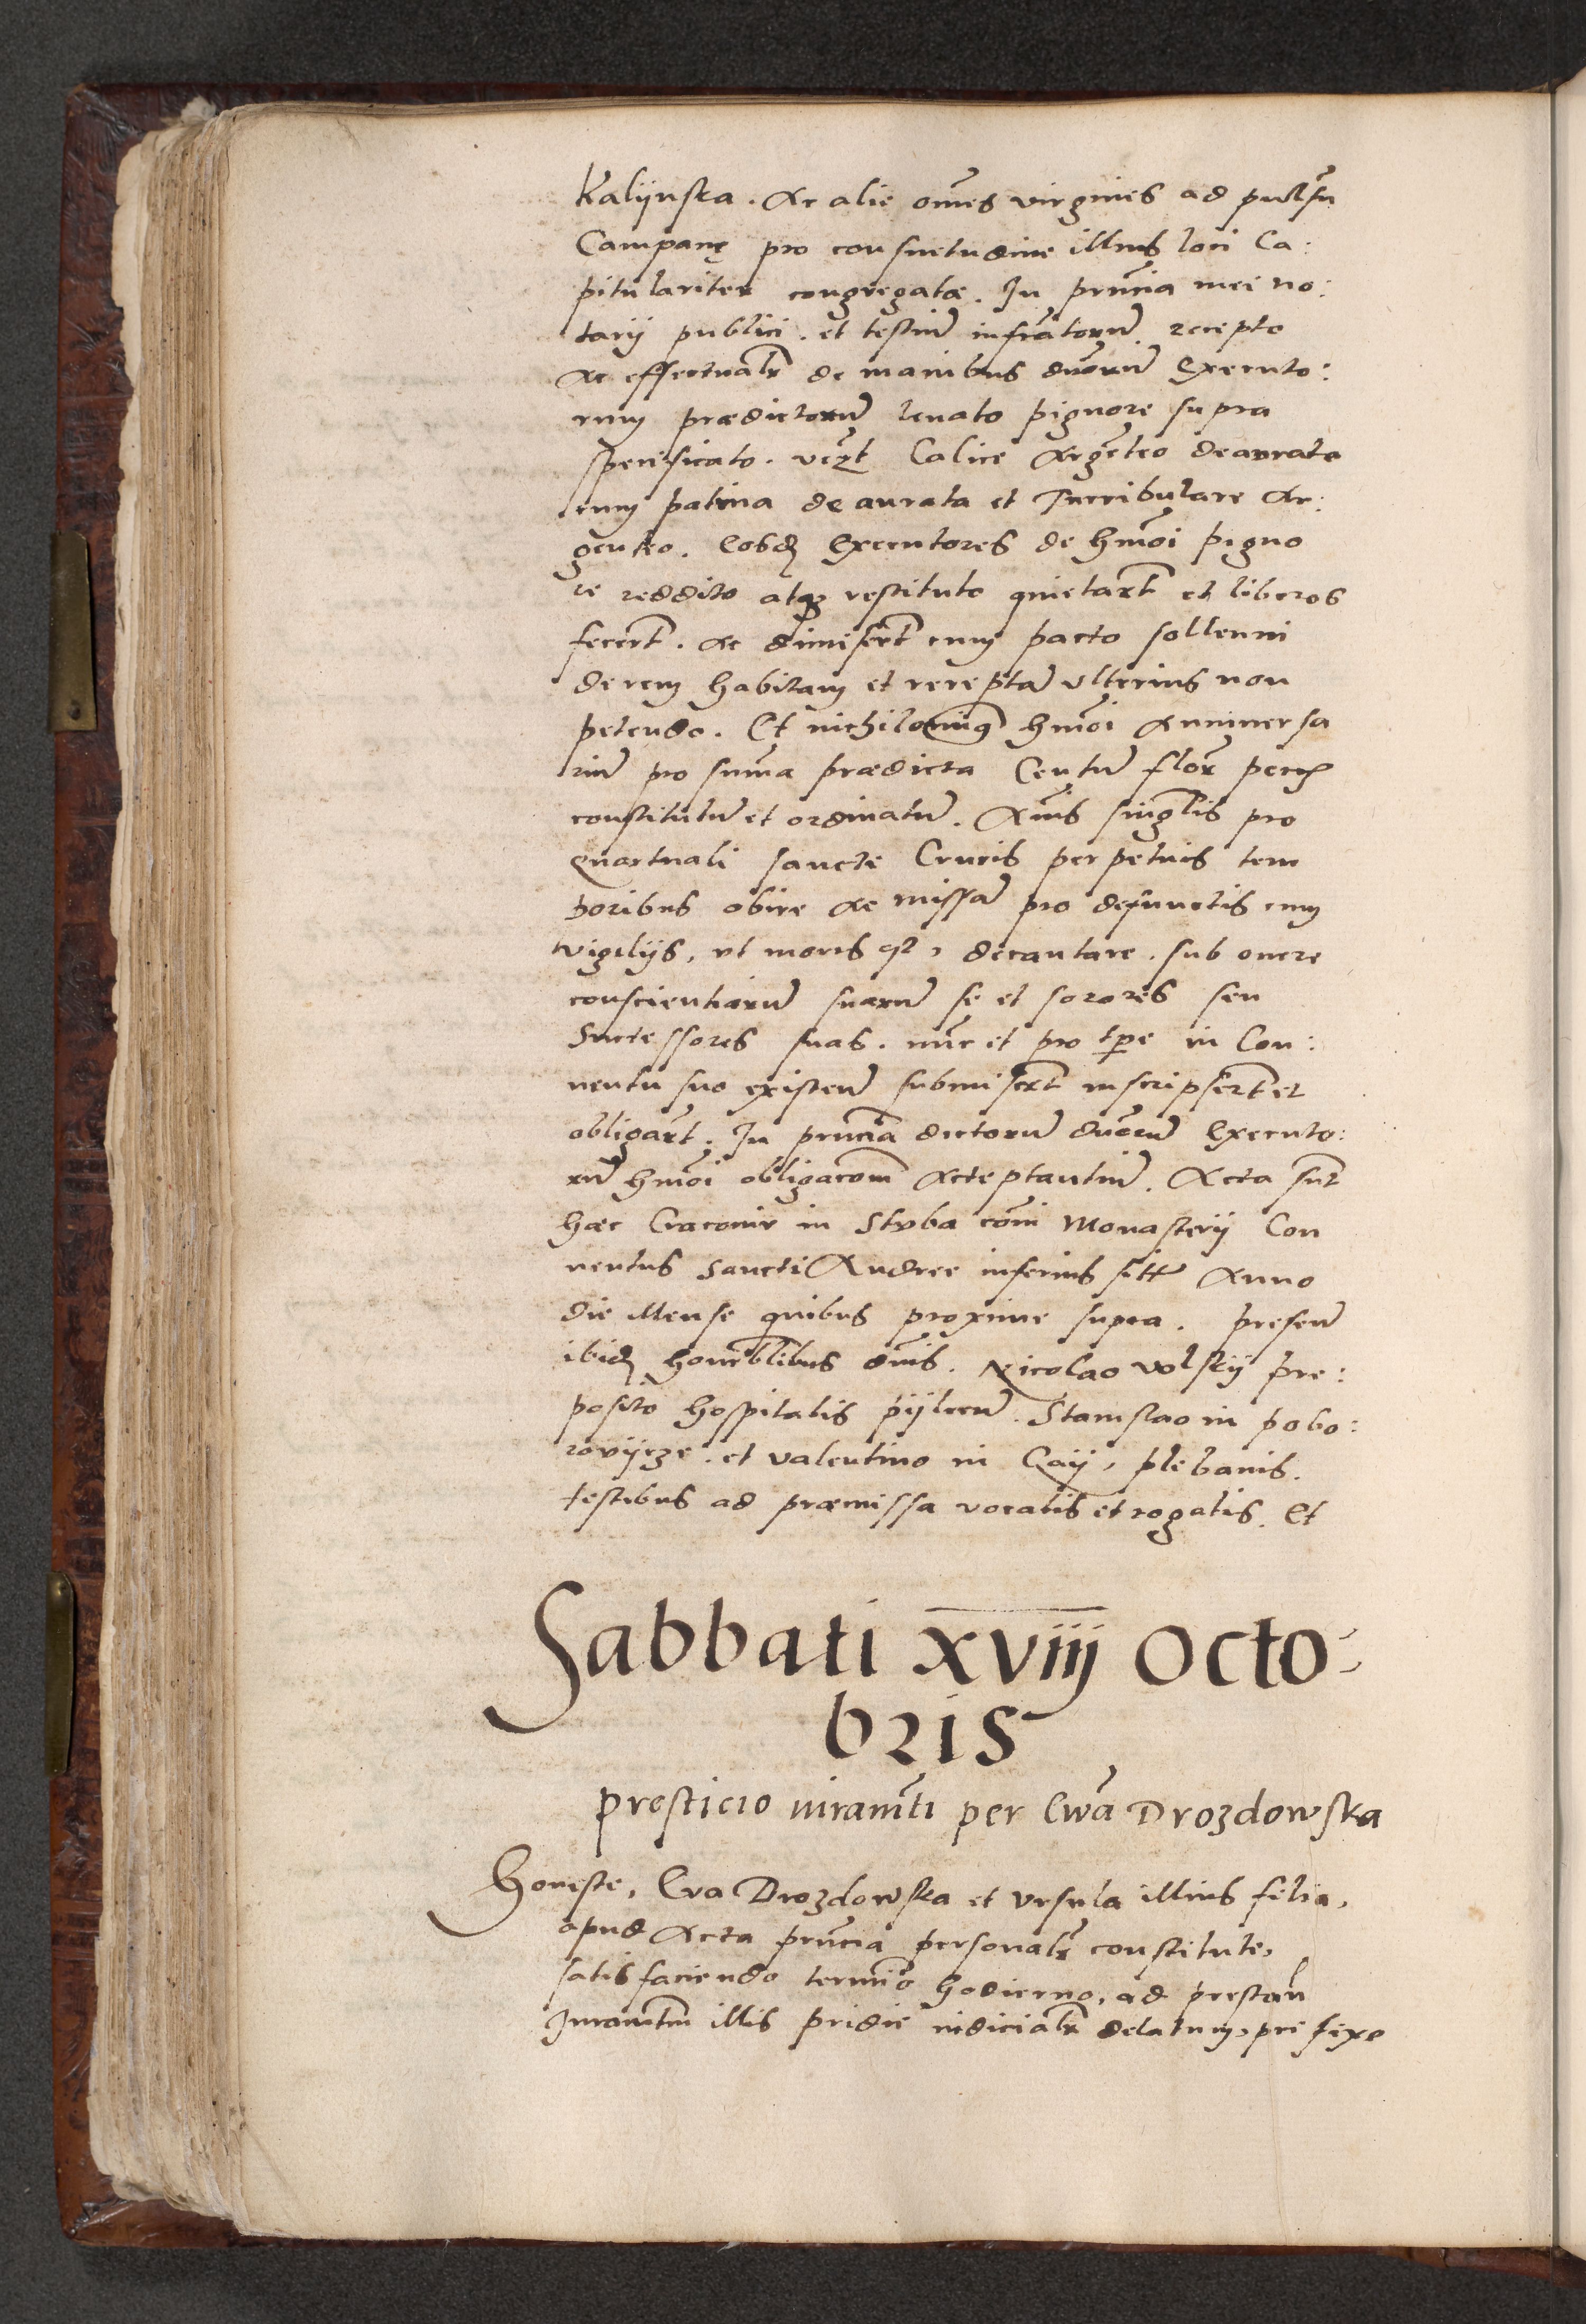 Kalijnska. Ac alie om̄es virgines ad pulsū
Campanę pro consuetudine illius loci Ca:
pitulariter congregatæ. In pn̄cia mei no:
tarij publici. et testiū infrātorū recepto
Ac effectualr̄ de manibus duorū Executo:
rum prædictorū leuato pignore supra
specificato. vczt Calice Argēteo deaurato
cum patina deaurata et Turribulare Ar:
genteo. Eosdē Executores de hmōi pigno
re reddito atq3 restituto quietarūt et liberos
fecerūt. Ac dimiserūt cum pacto sollenni
de rem habitam et receptā vlterius non
petendo. Et nichilominus hmōi Anniuersa
riū pro summa prædicta Centū flor̄ per eos
constitutū et ordinatū. Annis singlis pro
quartuali sancte Crucis perpetuis tem
poribus obire ac missā pro defunctis cum
vigilijs, vt moris est, decantare. sub onere
conscientiarū suarū se et sorores seu
Successores suas. nūc et pro tpe in Con:
uentu suo existeñ submiserūt inscripserūt et
obligarūt. In pn̄cia dictorū duorū Executo:
rū hmōi obligacōm Acceptantiū. Acta sūt
hæc Cracouie in Stuba cōmi Monasterij Con
uentus Sancti Andree inferius sitt̄ Anno
die Mense quibus proxime supra. preseñ
ibidē honorablibus dn̄is. Nicolao Volskij pre:
posito hospitalis pijlceñ. Stanislao in pobo:
rovijcze. et Valentino in Gaij, plebanis.
testibus ad præmissa vocatis et rogatis. Et
Sabbati xviij Octo:
bris
presticio iuramēti per Ewā Drozdowska
Honeste, Eva Drozdowska et Vrsula illius filia,
apud Acta pn̄cia personalr̄ constitute,
satisfaciendo termīo hodierno, ad prestañ
Iuramētm illis pridie iudicialr̄ delatum, prefixo